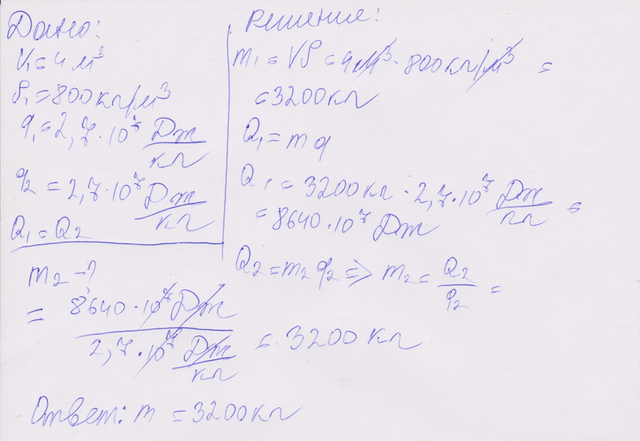 Дано:
V₁=4 м³
ρ₁=800кг/м³
q₁=2,7·10⁷ Дж/кг
q₂=2,7·10⁷ Дж/кг
Q₁=Q₂
m₂-?
Решение:
m₁=Vρ=4м³·800кг/м³=
=3200кг
Q₁=mq
Q₁=3200кг·2,7·10⁷ Дж/кг=
=8640·10⁷ Дж
Q₂=m₂q₂=>m₂=Q₂/q₂=
=8640·10⁷Дж/2,7·10⁷ Дж/кг=3200кг
Ответ: m=3200кг